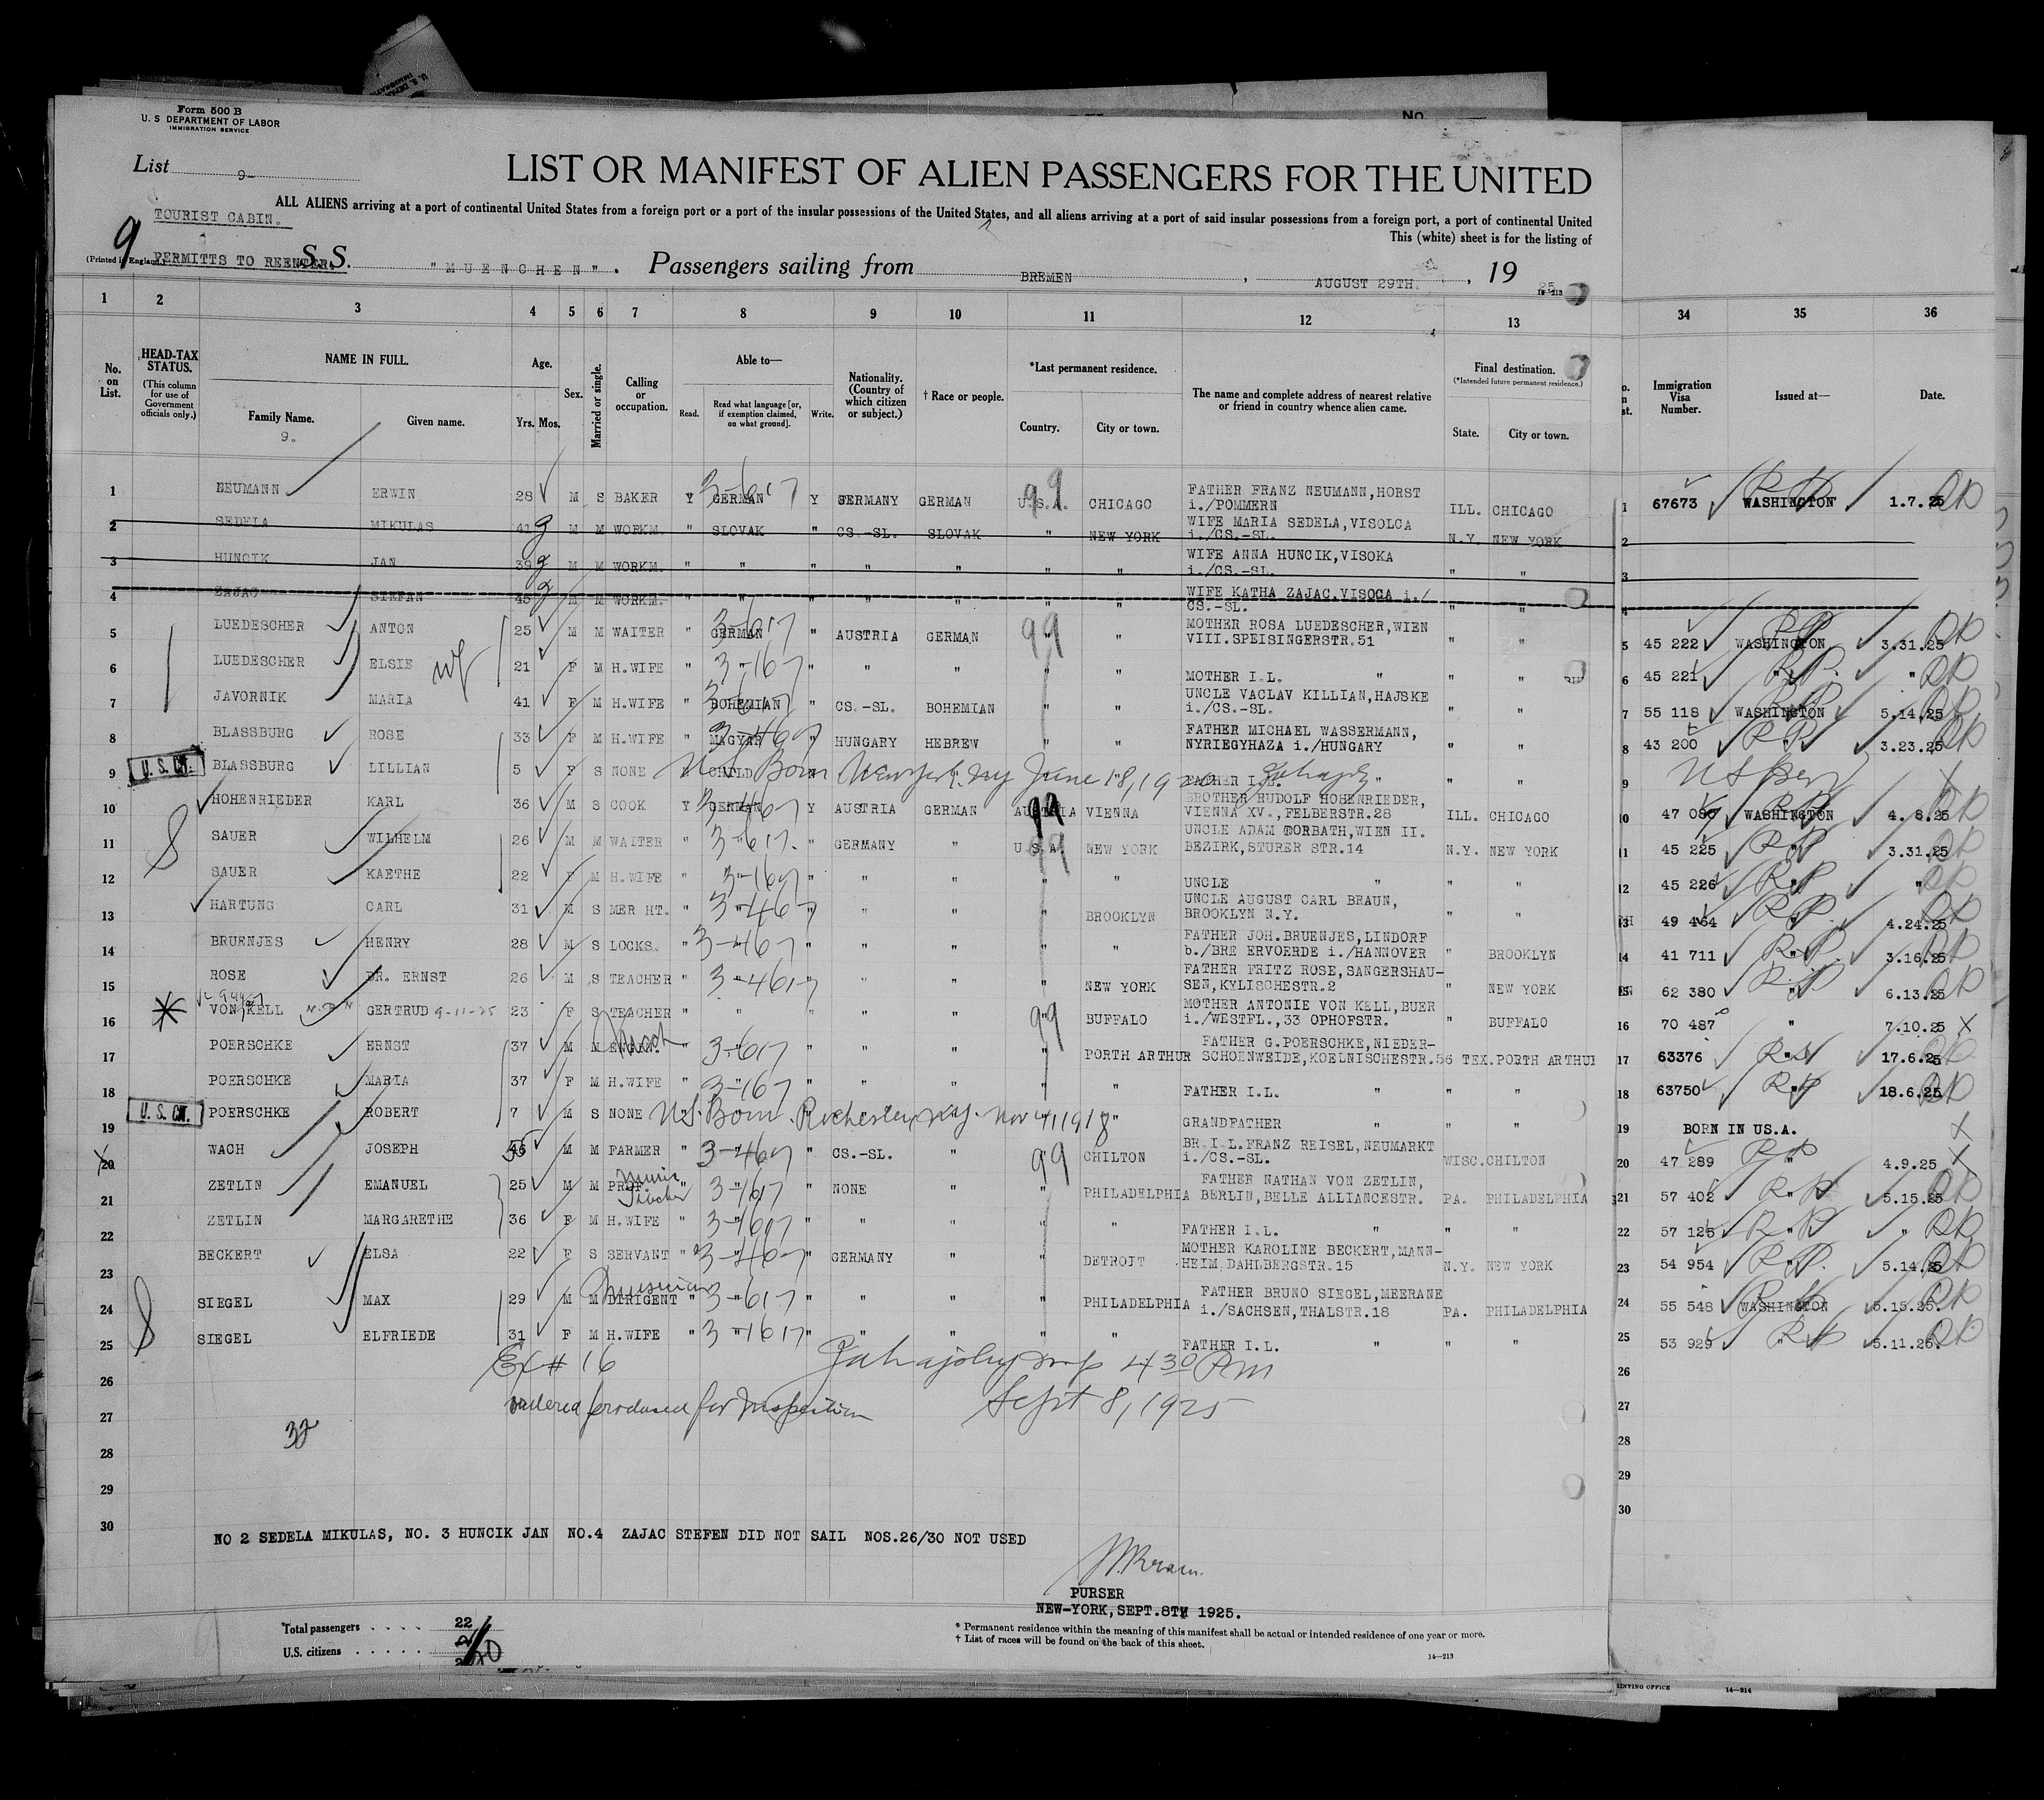 Form 500 B
U. S DEPARTMENT OF LABOR
IMMIGRATION SERVICE
No.
List 9-
LIST OR MANIFEST OF ALIEN PASSENGERS FOR THE UNITED
ALL ALIENS arriving at a port of continental United States from a foreign port or a port of the insular possessions of the United States, and all aliens arriving at a port of said insular possessions from a foreign port, a port of continental United
TOURIST CABIN.
This (white) sheet is for the listing of
9
(Printed in England.) PERMITTS TO REENTER.
S.S. "MUENCHEN". Passengers sailing from BREMEN, AUGUST 29TH, 1925
14-213
1 2 3 4 5 6 7 8 9 10 11 12 13 34 35 36
No. on List.
HEAD-TAX STATUS.
(This column for use of Government officials only.)
NAME IN FULL.
Family Name. Given name.
9.
Age.
Yrs. Mos.
Sex.
Married or single.
Calling or occupation.
Able to—
Read. Read what language [or, if exemption claimed, on what ground]. Write.
Nationality. (Country of which citizen or subject.)
† Race or people.
*Last permanent residence.
Country. City or town.
The name and complete address of nearest relative or friend in country whence alien came.
Final destination.
(*Intended future permanent residence.)
State. City or town.
Immigration Visa Number.
Issued at—
Date.
1 NEUMANN ERWIN 28 M S BAKER Y GERMAN Y GERMANY GERMAN U.S.A. CHICAGO FATHER FRANZ NEUMANN,HORST i./POMMERN ILL. CHICAGO 1 67673 WASHINGTON 1.7.25
2 SEDELA MIKULAS 41 M M WORKM. " SLOVAK " CS.-SL. SLOVAK " NEW YORK WIFE MARIA SEDELA,VISOLCA i./CS.-SL. N.Y. NEW YORK 2
3 HUNCIK JAN 39 M M WORKM. " " " " " " " WIFE ANNA HUNCIK,VISOKA i./CS.-SL. " " 3
4 ZAJAC STEFAN 45 M M WORKM. " " " " " " " WIFE KATHA ZAJAC,VISOCA i./ CS.-SL. " " 4
5 LUEDESCHER ANTON 25 M M WAITER " GERMAN " AUSTRIA GERMAN " " MOTHER ROSA LUEDESCHER,WIEN VIII.SPEISINGERSTR.51 " " 5 45 222 WASHINGTON 3.31.25
6 LUEDESCHER ELSIE 21 F M H.WIFE " " " " " " " MOTHER I.L. " " " 6 45 221 " "
7 JAVORNIK MARIA 41 F M H.WIFE " BOHEMIAN " CS.-SL. BOHEMIAN " " UNCLE VACLAV KILLIAN,HAJSKE i./CS.-SL. " " 7 55 118 WASHINGTON 5.14.25
8 BLASSBURG ROSE 33 F M H.WIFE " MAGYAR " HUNGARY HEBREW " " FATHER MICHAEL WASSERMANN, NYRIEGYHAZA i./HUNGARY " " 8 43 200 3.23.25
U.S. CIT. 9 BLASSBURG LILLIAN 5 F S NONE CHILD US Born New York. FATHER I.L. " " " 9 US Born
10 HOHENRIEDER KARL 36 M S COOK Y GERMAN Y AUSTRIA GERMAN AUSTRIA VIENNA BROTHER RUDOLF HOHENRIEDER, VIENNA XV.,FELBERSTR.28 ILL. CHICAGO 10 47 086 WASHINGTON 4. 8.25
11 SAUER WILHELM 26 M M WAITER " " GERMANY " U.S.A. NEW YORK UNCLE ADAM TORBATH,WIEN II. BEZIRK,STURER STR.14 N.Y. NEW YORK 11 45 225 " 3.31.25
12 SAUER KAETHE 22 F M H.WIFE " " " " " " " UNCLE " " " 12 45 226 " "
13 HARTUNG CARL 31 M S MER HT. " " " " " " BROOKLYN UNCLE AUGUST CARL BRAUN, BROOKLYN N.Y. " " 13 49 464 " 4.24.25
14 BRUENJES HENRY 28 M S LOCKS. " " " " " " " FATHER JOH.BRUENJES,LINDORF b./BRE ERVOERDE i./HANNOVER " BROOKLYN 14 41 711 " 3.16.25
15 ROSE DR. ERNST 26 M S TEACHER " " " " " " NEW YORK FATHER FRITZ ROSE,SANGERSHAU- SEN,KYLISCHESTR.2 " NEW YORK 15 62 380 " 6.13.25
16 VON KELL GERTRUD 9-11-25 23 F S TEACHER " " " " " " BUFFALO MOTHER ANTONIE VON KELL,BUER i./WESTFL.,33 OPHOFSTR. " BUFFALO 16 70 487 " 7.10.25 X
17 POERSCHKE ERNST 37 M M " " " " " " PORTH ARTHUR FATHER G.POERSCHKE,NIEDER- SCHOENWEIDE,KOELNISCHESTR.56 TEX.PORTH ARTHUR 17 63376 17.6.25
18 POERSCHKE MARIA 37 F M H.WIFE " " " " " " " FATHER I.L. " " " 18 63750 " 18.6.25
U.S. CIT. 19 POERSCHKE ROBERT 7 M S NONE US. Born. Rochester, N.Y. Nov 4, 1918 " GRANDFATHER " " " 19 BORN IN US.A. X
20 WACH JOSEPH M M FARMER " " CS.-SL. " " CHILTON BR.I.L.FRANZ REISEL,NEUMARKT i./CS.-SL. WISC.CHILTON 20 47 289 " 4.9.25 X
21 ZETLIN EMANUEL 25 M M PROF. Music Teacher " " " NONE " " PHILADELPHIA FATHER NATHAN VON ZETLIN, BERLIN,BELLE ALLIANCESTR. PA. PHILADELPHIA 21 57 402 " 5.15.25
22 ZETLIN MARGARETHE 36 F M H.WIFE " " " " " " " FATHER I.L. " " " 22 57 125 " "
23 BECKERT ELSA 22 F S SERVANT " " " GERMANY " " DETROJT MOTHER KAROLINE BECKERT,MANN- HEIM,DAHLBERGSTR.15 N.Y. NEW YORK 23 54 954 " 5.14.25
24 SIEGEL MAX 29 M M DIRIGENT Musician " " " " " " PHILADELPHIA FATHER BRUNO SIEGEL,MEERANE i./SACHSEN,THALSTR.18 PA. PHILADELPHIA 24 55 548 WASHINGTON 5.15.25.
25 SIEGEL ELFRIEDE 31 F M H.WIFE " " " " " " " FATHER I.L. " " " 25 53 929 " 5.11.25.
26 Ex # 16 4 30 PM 26
27 ordered produced for Inspection Sept 8, 1925 27
28 28
29 29
30 30
NO 2 SEDELA MIKULAS, NO. 3 HUNCIK JAN NO.4 ZAJAC STEFEN DID NOT SAIL NOS.26/30 NOT USED
PURSER
NEW-YORK,SEPT.8TH 1925.
Total passengers . . . . 22
U.S. citizens . . . . .
* Permanent residence within the meaning of this manifest shall be actual or intended residence of one year or more.
† List of races will be found on the back of this sheet.
14—213
INTING OFFICE 14—214